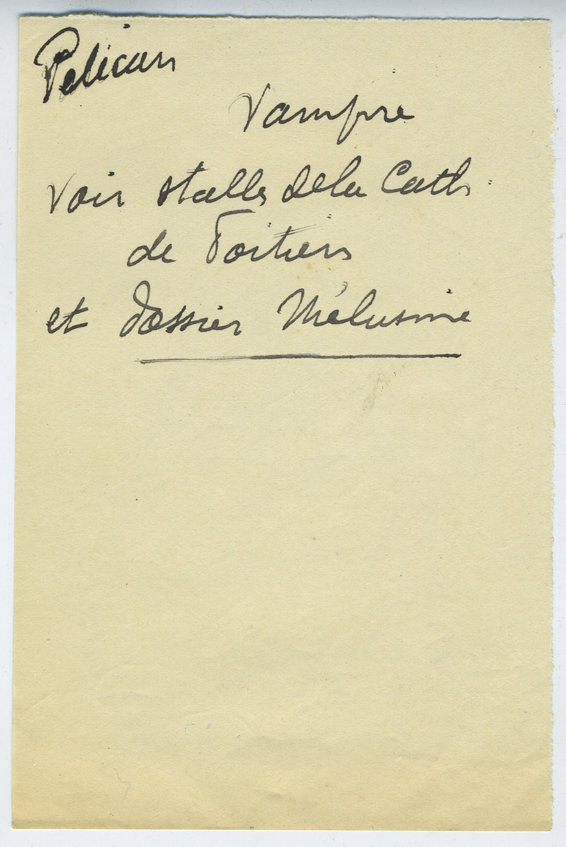 Pelican
Vampire
voir stalles de la Cath.
de Poitiers
et dossier Mélusine